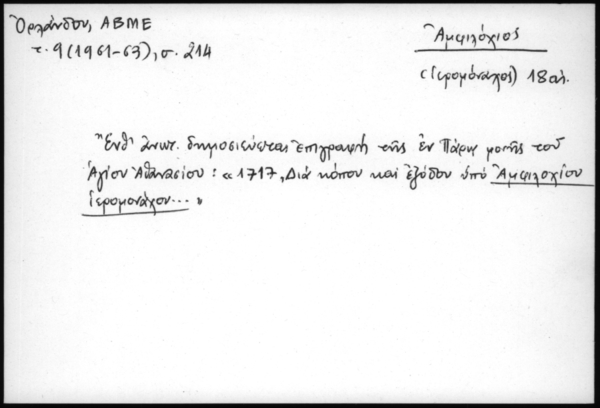 Ὀρλάνδου, ΑΒΜΕ
τ. 9 (1961-63), σ. 214
Ἀμφιλόχιος
(Ἱερομόναχος) 18 αἰ.
Ἔνθ' ἀνωτ. δημοσιεύεται ἐπιγραφὴ τῆς ἐν Πάρῳ μονῆς τοῦ
Ἁγίου Ἀθανασίου: « 1717, Διὰ κόπου καὶ ἐξόδου ὑπὸ Ἀμφιλοχίου
Ἱερομονάχου... »